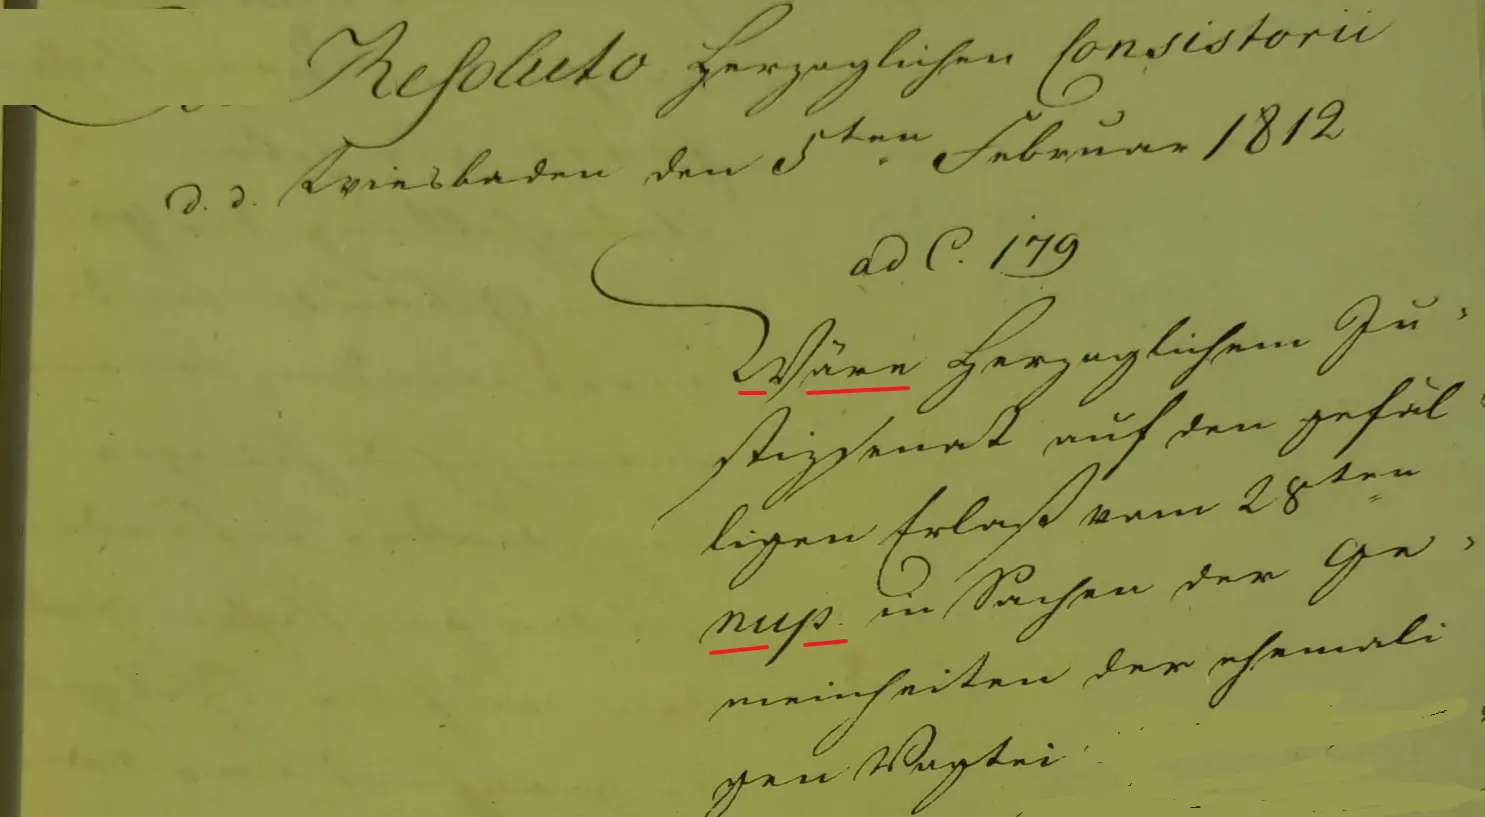 Resoluto Herzoglichen Consistorii
d. d. Wiesbaden den 5ten Februar 1812
ad C. 179
Wäre Herzoglichem Ju-
stizsenat auf den gefäl
ligen Erlaß vom 28ten
nup. in Sachen der Ge-
meinheiten der ehemali
gen Vogtei